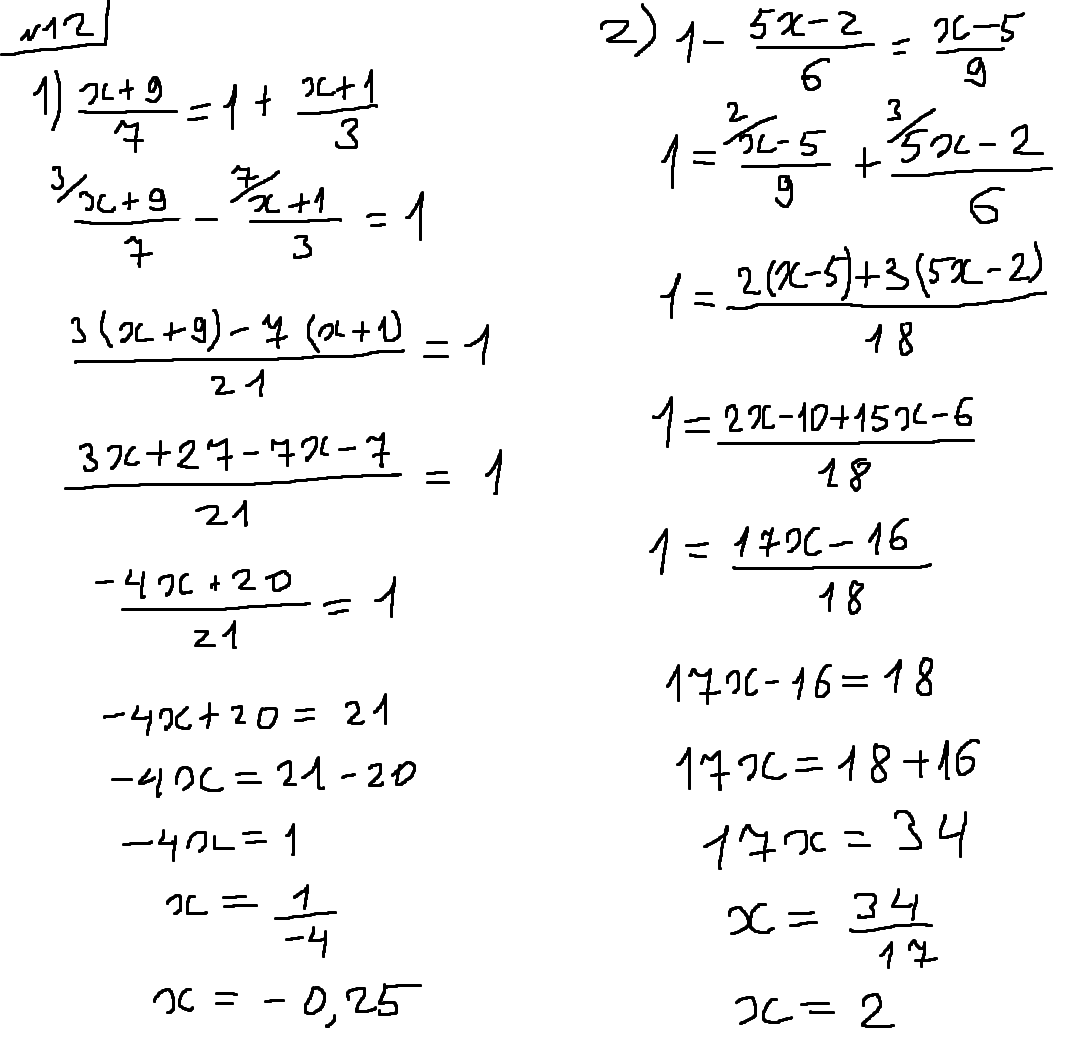 №12
1) (x+9)/7 = 1 + (x+1)/3
³⁄(x+9)/7 − ⁷⁄(x+1)/3 = 1
(3(x+9)−7(x+1))/21 = 1
(3x+27−7x−7)/21 = 1
(−4x+20)/21 = 1
−4x+20 = 21
−4x = 21−20
−4x = 1
x = 1/−4
x = −0,25
2) 1− (5x−2)/6 = (x−5)/9
1 = ²⁄(x−5)/9 + ³⁄(5x−2)/6
1 = (2(x−5)+3(5x−2))/18
1 = (2x−10+15x−6)/18
1 = (17x−16)/18
17x−16 = 18
17x = 18+16
17x = 34
x = 34/17
x = 2